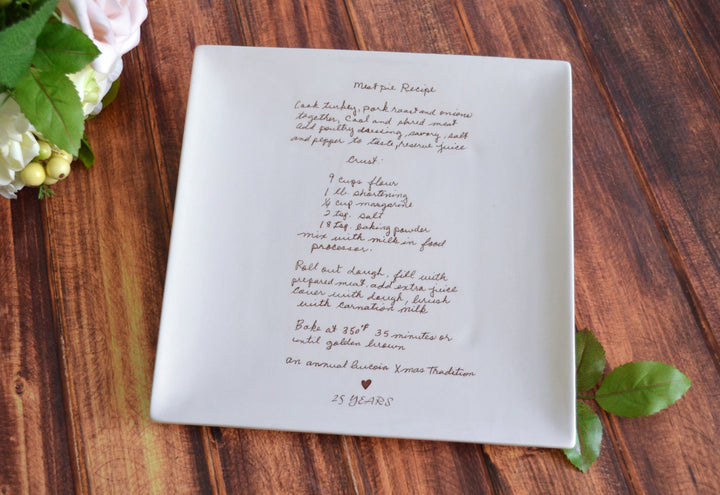 Meat pie Recipe
Cook turkey, pork roast and onions
together, cool and shred meat
add poultry dressing, savory, salt
and pepper to taste, reserve juice
Crust:
9 cups flour
1 lb. shortening
¼ cup margarine
2 tsp. salt
18 tsp. baking powder
mix with milk in food
processor.
Roll out dough, fill with
prepared meat, add extra juice
Cover with dough, brush
with carnation milk
Bake at 350°F 35 minutes or
until golden brown
an annual Xmas Tradition
25 YEARS